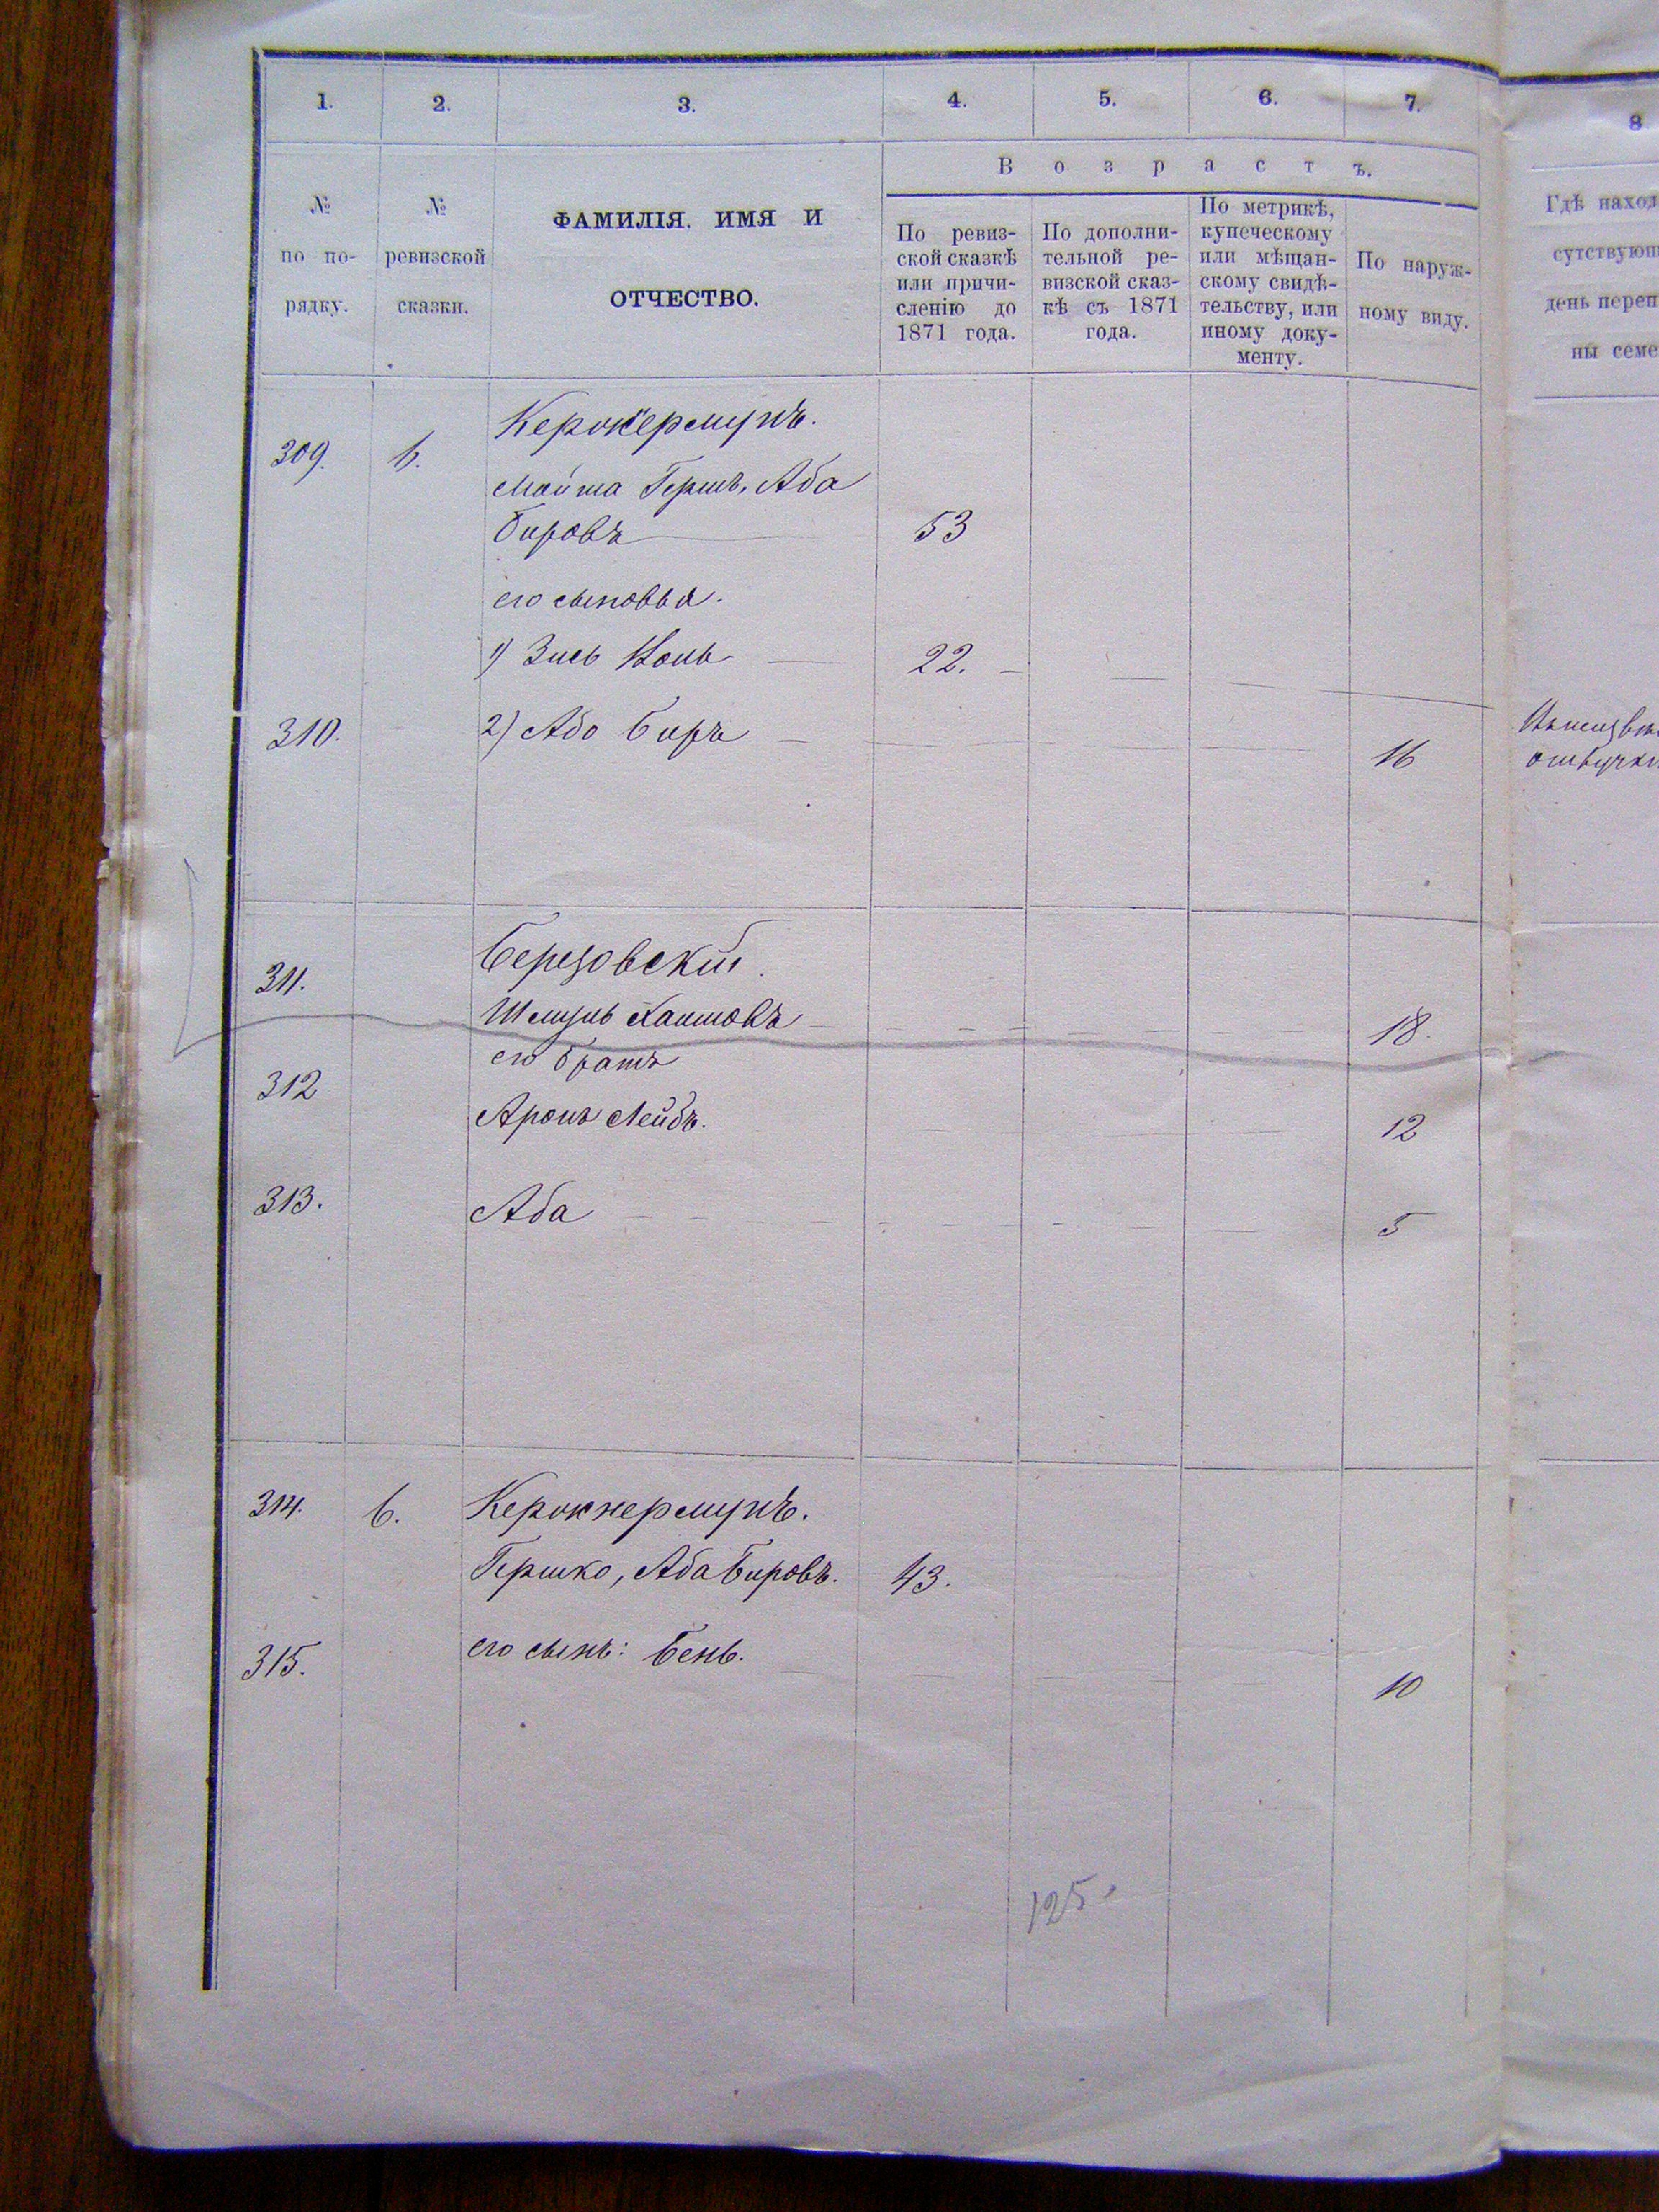 1. 2. 3. 4. 5. 6. 7. 8
Возрастъ.
№
по по-
рядку.
№
ревизской
сказки.
ФАМИЛІЯ, ИМЯ И
ОТЧЕСТВО.
По ревиз-
ской сказкѣ
или причи-
сленію до
1871 года.
По дополни-
тельной ре-
визской сказ-
кѣ съ 1871
года.
По метрикѣ,
купеческому
или мѣщан-
скому свидѣ-
тельству, или
иному доку-
менту.
По наруж-
ному виду.
Гдѣ наход
сутствующ
день переп
ны семе
309. 6.
Гершъ, Аба
Бировъ 53
его сыновья.
1) Зись 22.
310. 2) Або Биръ 16
311. Березовскій
18.
312 его братъ
Аронъ Лейбъ. 12
313. Аба 5
314. 6. Керокнермунъ.
Гершко, Аба Бировъ. 43.
315. его сынъ: Бень. 10
125.